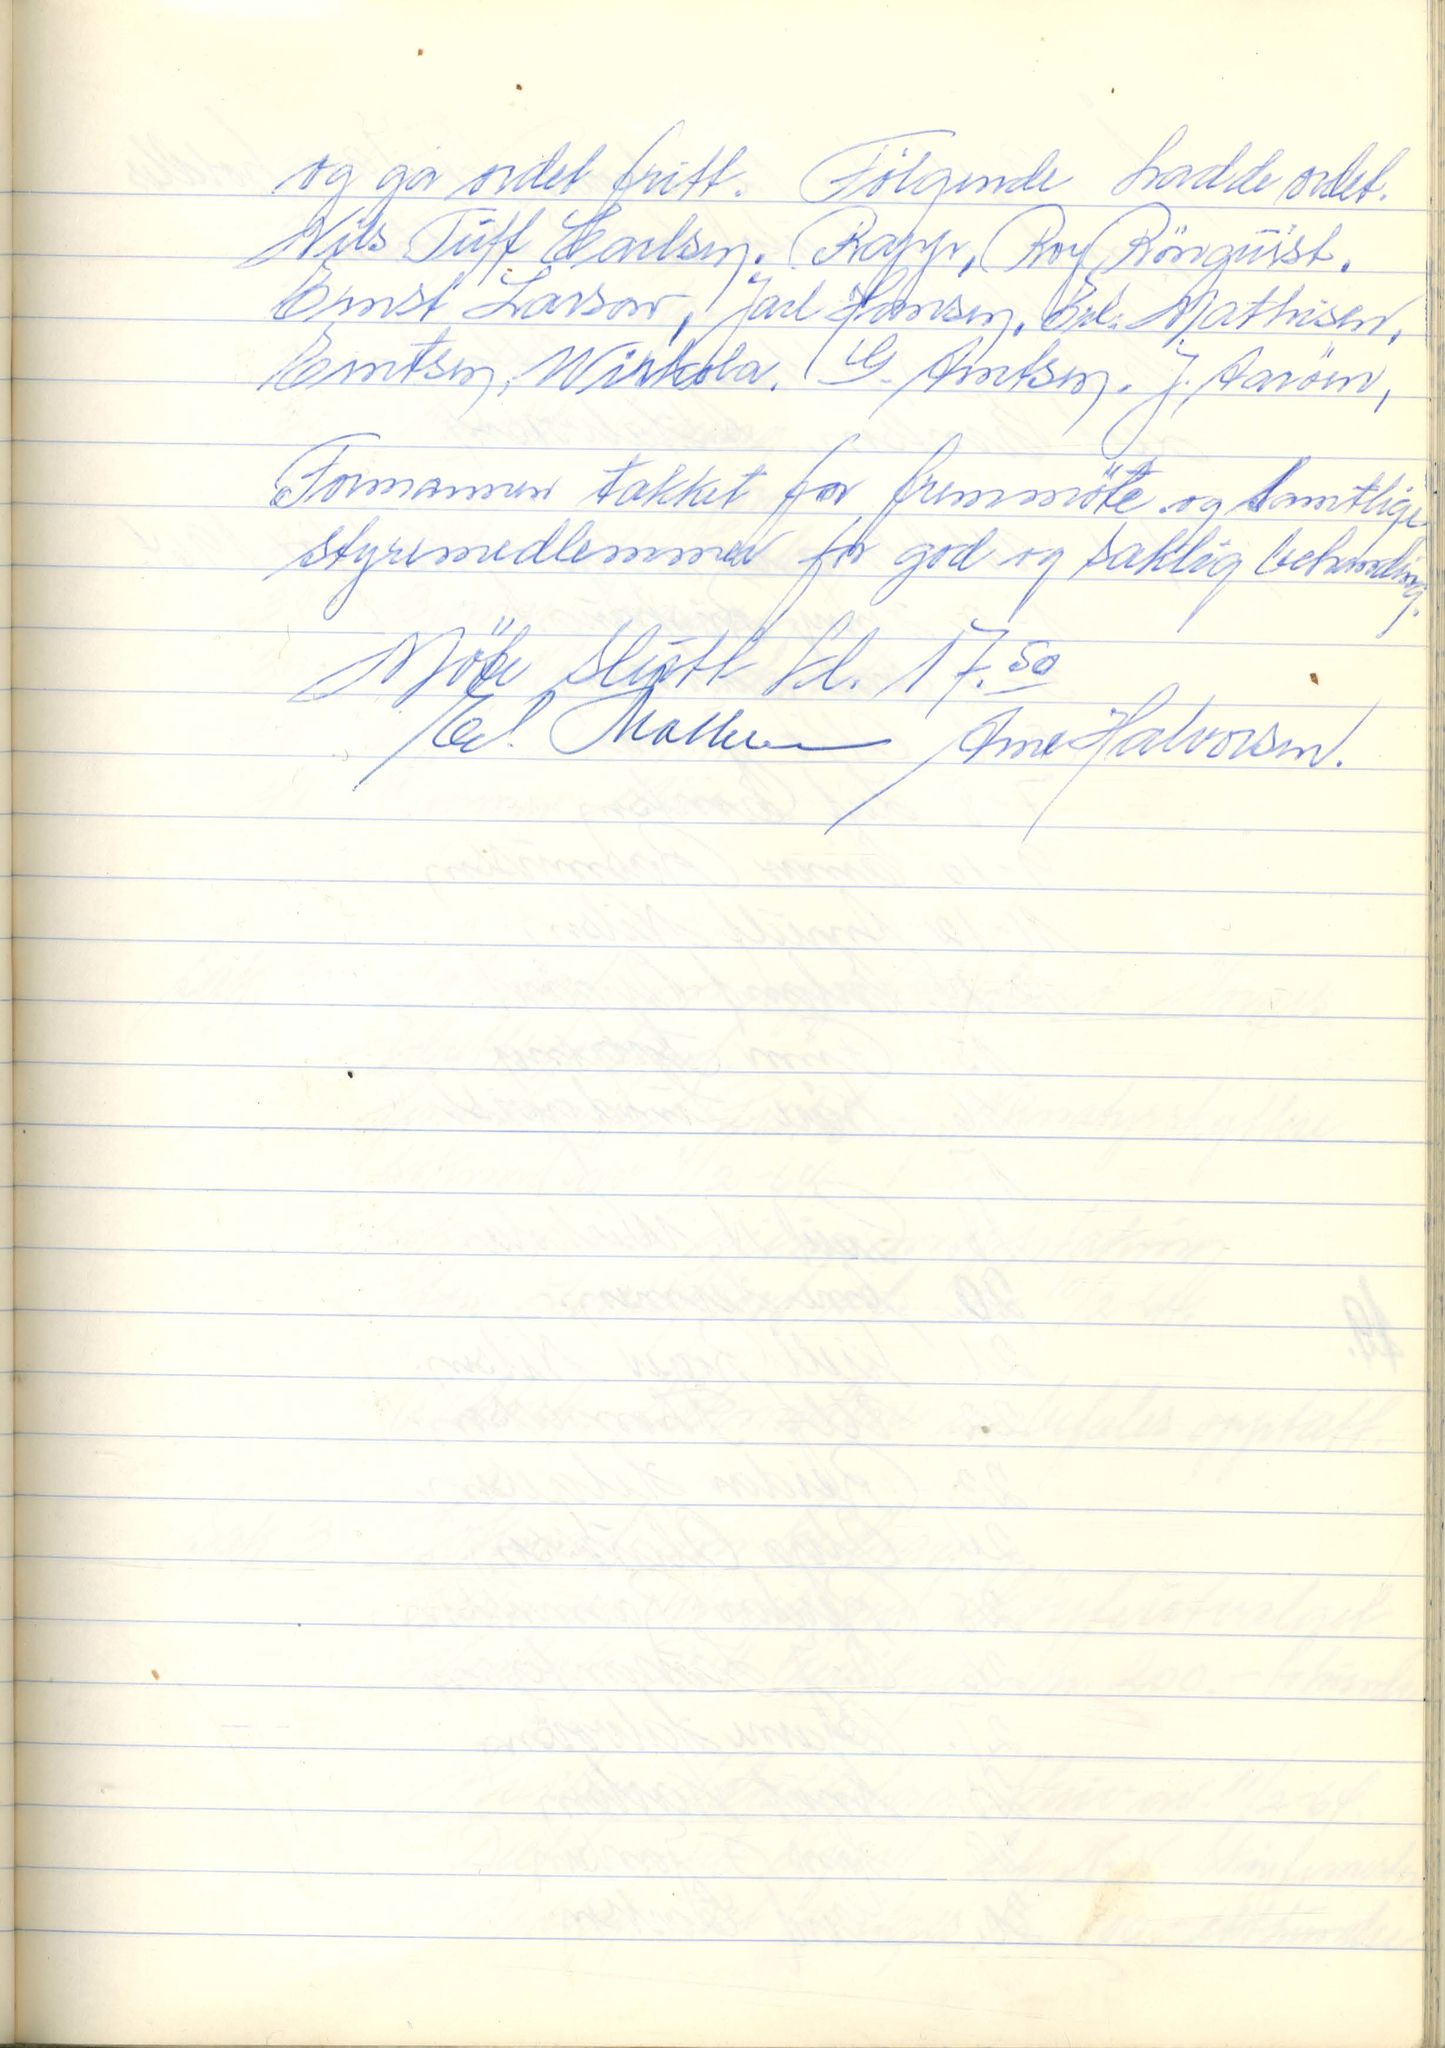 og ga ordet fritt. Fölgende hadde ordet.
Nils Tuff Carlsen. Rapp, Roy Rönquist.
Ernst Larsen, Jarl Hansen, Erl. Mathisen,
Erntsen, Wirkola. G. Arntsen. J. Aaröen,
Formannen takket for fremmöte og samtlige
styremedlemmer for god og saklig behandling.
Möte slutt kl. 17.50
Erl. Mathisen Arne Halvorsen.